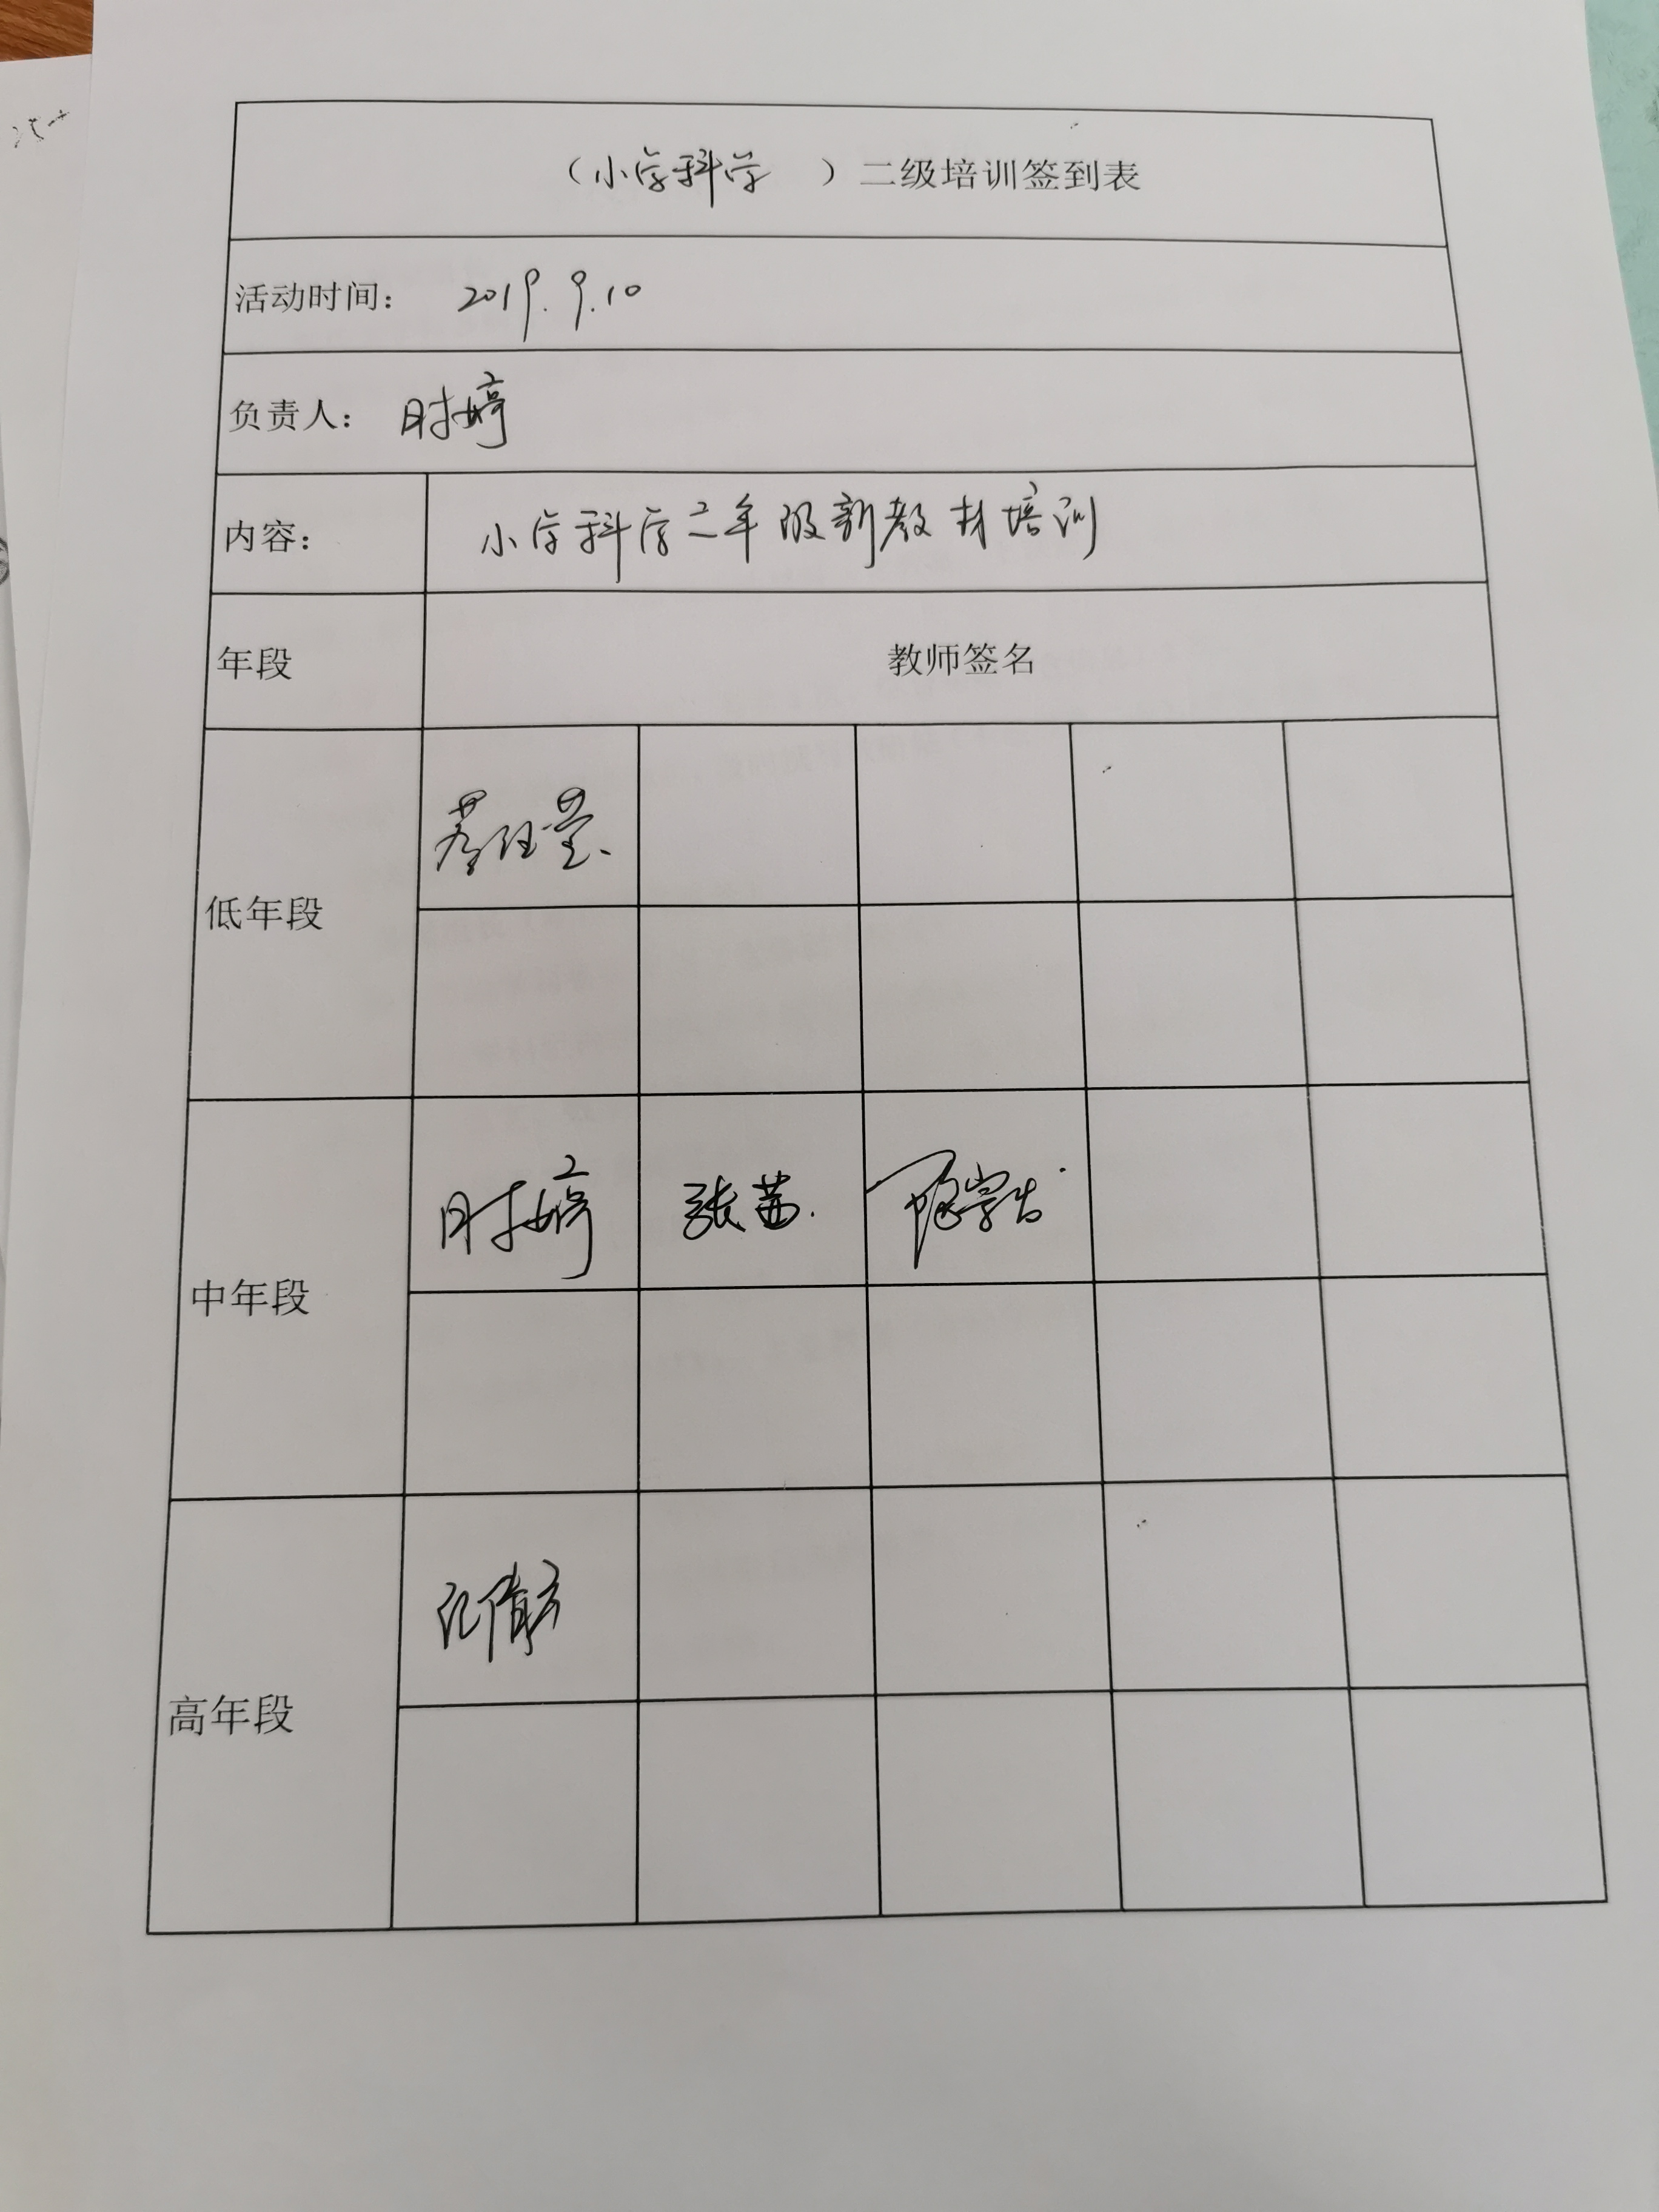 （小学科学 ）二级培训签到表
活动时间： 2019.9.10
负责人： 时婷
内容： 小学科学二年级新教材培训
年段 教师签名
低年段
中年段 时婷 张茜
高年段